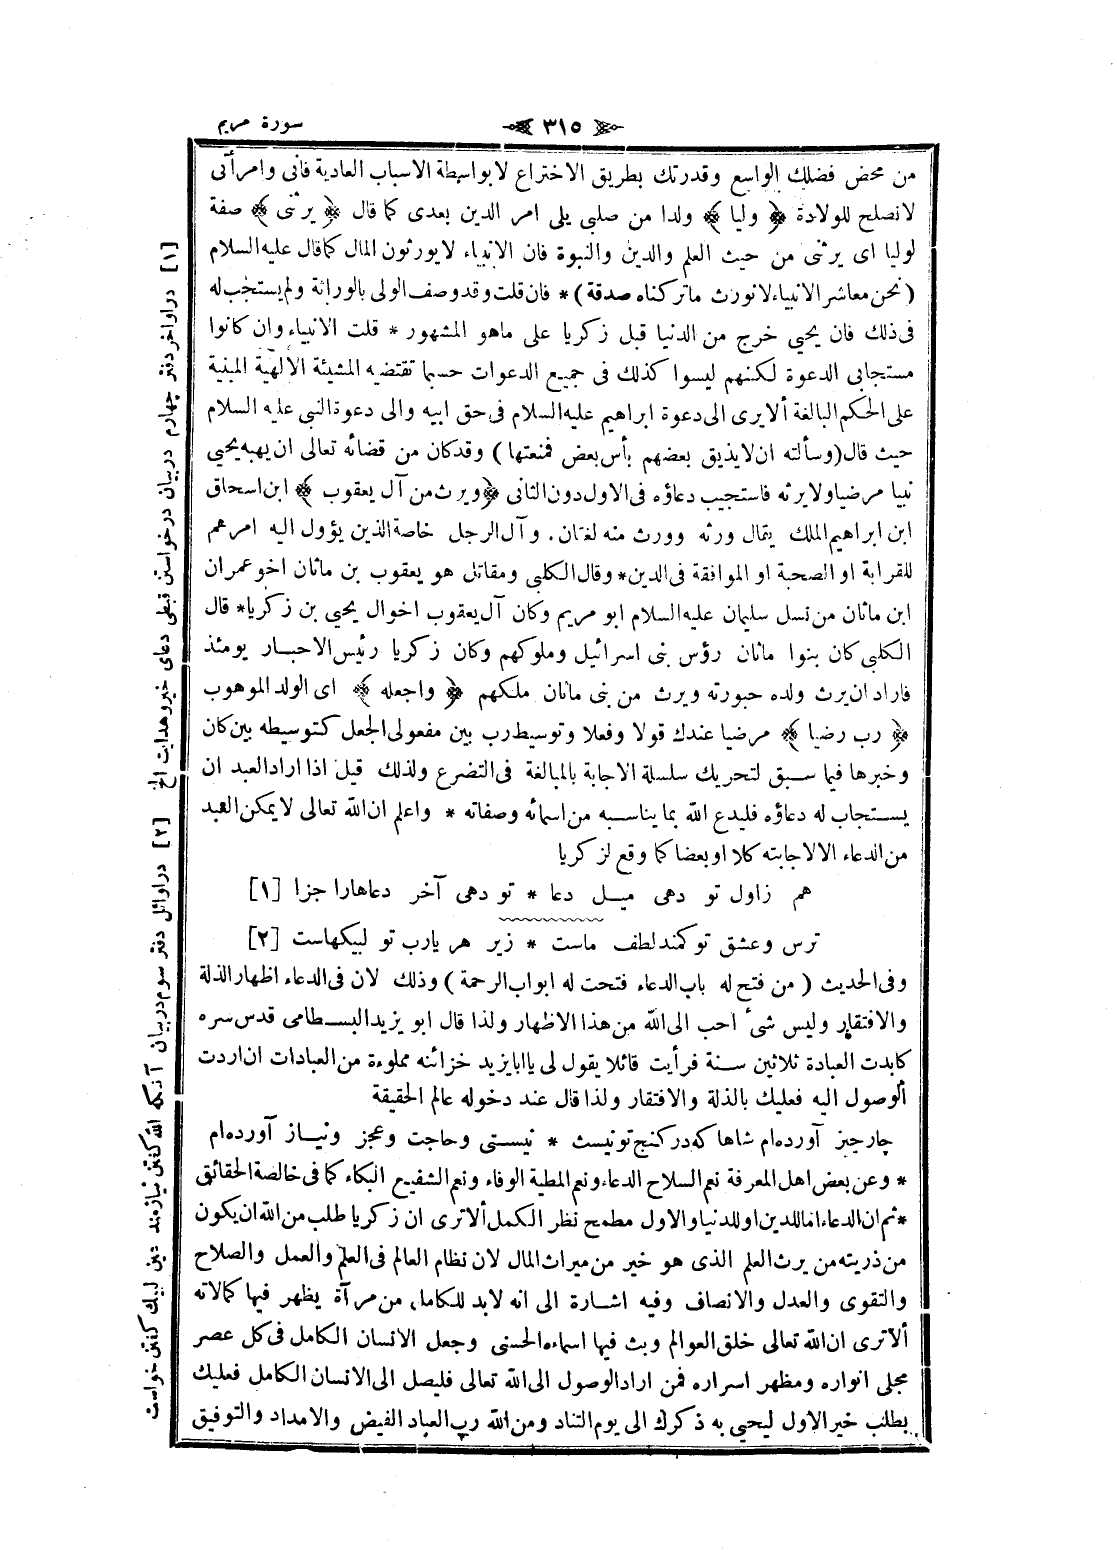 سورة مريم
٣١٥
من محض فضلك الواسع وقدرتك بطريق الاختراع لابواسطة الاسباب العادية فانى وامرأتى
لانصلح للولادة ﴿ وليا ﴾ ولدا من صلبى يلى امر الدين بعدى كما قال ﴿ يرثنى ﴾ صفة
لوليا اى يرثنى من حيث العلم والدين والنبوة فان الانبياء لايورثون المال كما قال عليه السلام
( نحن معاشر الانبياء لانورث ماتركناه صدقة ) * فان قلت وقد وصف الولى بالوراثة ولم يستجب له
فى ذلك فان يحيى خرج من الدنيا قبل زكريا على ماهو المشهور * قلت الانبياء وان كانوا
مستجابى الدعوة لكنهم ليسوا كذلك فى جميع الدعوات حسبما تقتضيه المشيئة الألهية المبنية
على الحكم البالغة ألايرى الى دعوة ابراهيم عليه السلام فى حق ابيه والى دعوة النبى عليه السلام
حيث قال ( وسألته ان لايذيق بعضهم بأس بعض فمنعتها ) وقد كان من قضائه تعالى ان يهبه يحيى
نبيا مرضيا ولايرثه فاستجيب دعاؤه فى الاول دون الثانى ﴿ ويرث من آل يعقوب ﴾ ابن اسحاق
ابن ابراهيم الملك يقال ورثه وورث منه لغتان. وآل الرجل خاصة الذين يؤول اليه امرهم
للقرابة او الصحبة او الموافقة فى الدين * وقال الكلبى ومقاتل هو يعقوب بن ماثان اخو عمران
ابن ماثان من نسل سليمان عليه السلام ابو مريم وكان آل يعقوب اخوال يحيى بن زكريا * قال
الكلبى كان بنوا ماثان رؤس بنى اسرائيل وملوكهم وكان زكريا رئيس الاحبار يومئذ
فاراد ان يرث ولده حبورته ويرث من بنى ماثان ملكهم ﴿ واجعله ﴾ اى الولد الموهوب
﴿ رب رضيا ﴾ مرضيا عندك قولا وفعلا وتوسيط رب بين مفعولى الجعل كتوسيطه بين كان
وخبرها فيما سبق لتحريك سلسلة الاجابة بالمبالغة فى التضرع ولذلك قيل اذا اراد العبد ان
يستجاب له دعاؤه فليدع الله بما يناسبه من اسمائه وصفاته * واعلم ان الله تعالى لايمكن العبد
من الدعاء الا لاجابته كلا او بعضا كما وقع لزكريا
هم زاول تو دهى ميل دعا * تو دهى آخر دعاهارا جزا [١]
ترس وعشق تو كمند لطف ماست * زير هر يارب تو لبيكهاست [٢]
وفى الحديث ( من فتح له باب الدعاء فتحت له ابواب الرحمة ) وذلك لان فى الدعاء اظهار الذلة
والافتقار وليس شىء احب الى الله من هذا الاظهار ولذا قال ابو يزيد البسطامى قدس سره
كابدت العبادة ثلاثين سنة فرأيت قائلا يقول لى ياابا يزيد خزائنه مملوءة من العبادات ان اردت
ألوصول اليه فعليك بالذلة والافتقار ولذا قال عند دخوله عالم الحقيقة
چارچيز آورده ام شاها كه در كنج تو نيست * نيستى وحاجت وعجز ونياز آورده ام
* وعن بعض اهل المعرفة نعم السلاح الدعاء ونعم المطية الوفاء ونعم الشفيع البكاء كما فى خالصة الحقائق
* ثم ان الدعاء اما للدين او للدنيا والاول مطمح نظر الكمل ألاترى ان زكريا طلب من الله ان يكون
من ذريته من يرث العلم الذى هو خير من ميراث المال لان نظام العالم فى العلم والعمل والصلاح
والتقوى والعدل والانصاف وفيه اشارة الى انه لابد للكامل من مرآة يظهر فيها كمالاته
ألاترى ان الله تعالى خلق العوالم وبث فيها اسماءه الحسنى وجعل الانسان الكامل فى كل عصر
مجلى انواره ومظهر اسراره فمن اراد الوصول الى الله تعالى فليصل الى الانسان الكامل فعليك
بطلب خير الاول ليحيى به ذكرك الى يوم التناد ومن الله رب العباد الفيض والامداد والتوفيق
[١] در اواخر دفتر چهارم در بيان درخواستن قبطى دعاى خير وهدايت الخ [٢] در اوائل دفتر سوم در بيان آنكه الله گفتن نيازمند عين لبيك گفتن خواست